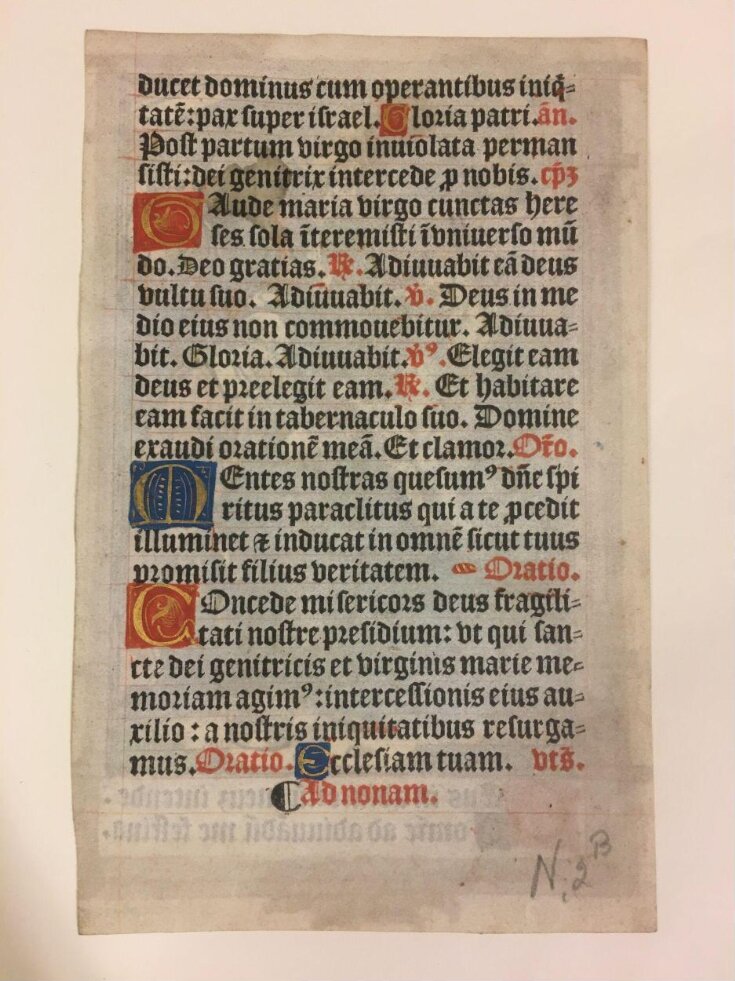 ducet dominus cum operantibus iniq̃⸗
tatē: pax super israel. Gloria patri. añ.
Post partum virgo inuiolata perman
sisti: dei genitrix intercede ꝓ nobis. cp̃ꝫ
Gaude maria virgo cunctas here
ses sola īteremisti īvniuerso mū
do. Deo gratias. ℟. Adiuuabit eā deus
vultu suo. Adiuuabit. ꝟ. Deus in me
dio eius non commouebitur. Adiuua⸗
bit. Gloria. Adiuuabit. ꝟꝰ. Elegit eam
deus et preelegit eam. ℟. Et habitare
eam facit in tabernaculo suo. Domine
exaudi orationē meā. Et clamor. Oro̅.
Mentes nostras quesumꝰ dñe spi
ritus paraclitus qui a te ꝓcedit
illuminet ⁊ inducat in omnē sicut tuus
promisit filius veritatem. Oratio.
Concede misericors deus fragili⸗
tati nostre presidium: vt qui san⸗
cte dei genitricis et virginis marie me⸗
moriam agimꝰ: intercessionis eius au⸗
xilio: a nostris iniquitatibus resurga⸗
mus. Oratio. Ecclesiam tuam. vts̄.
Ad nonam.
N. 2 B